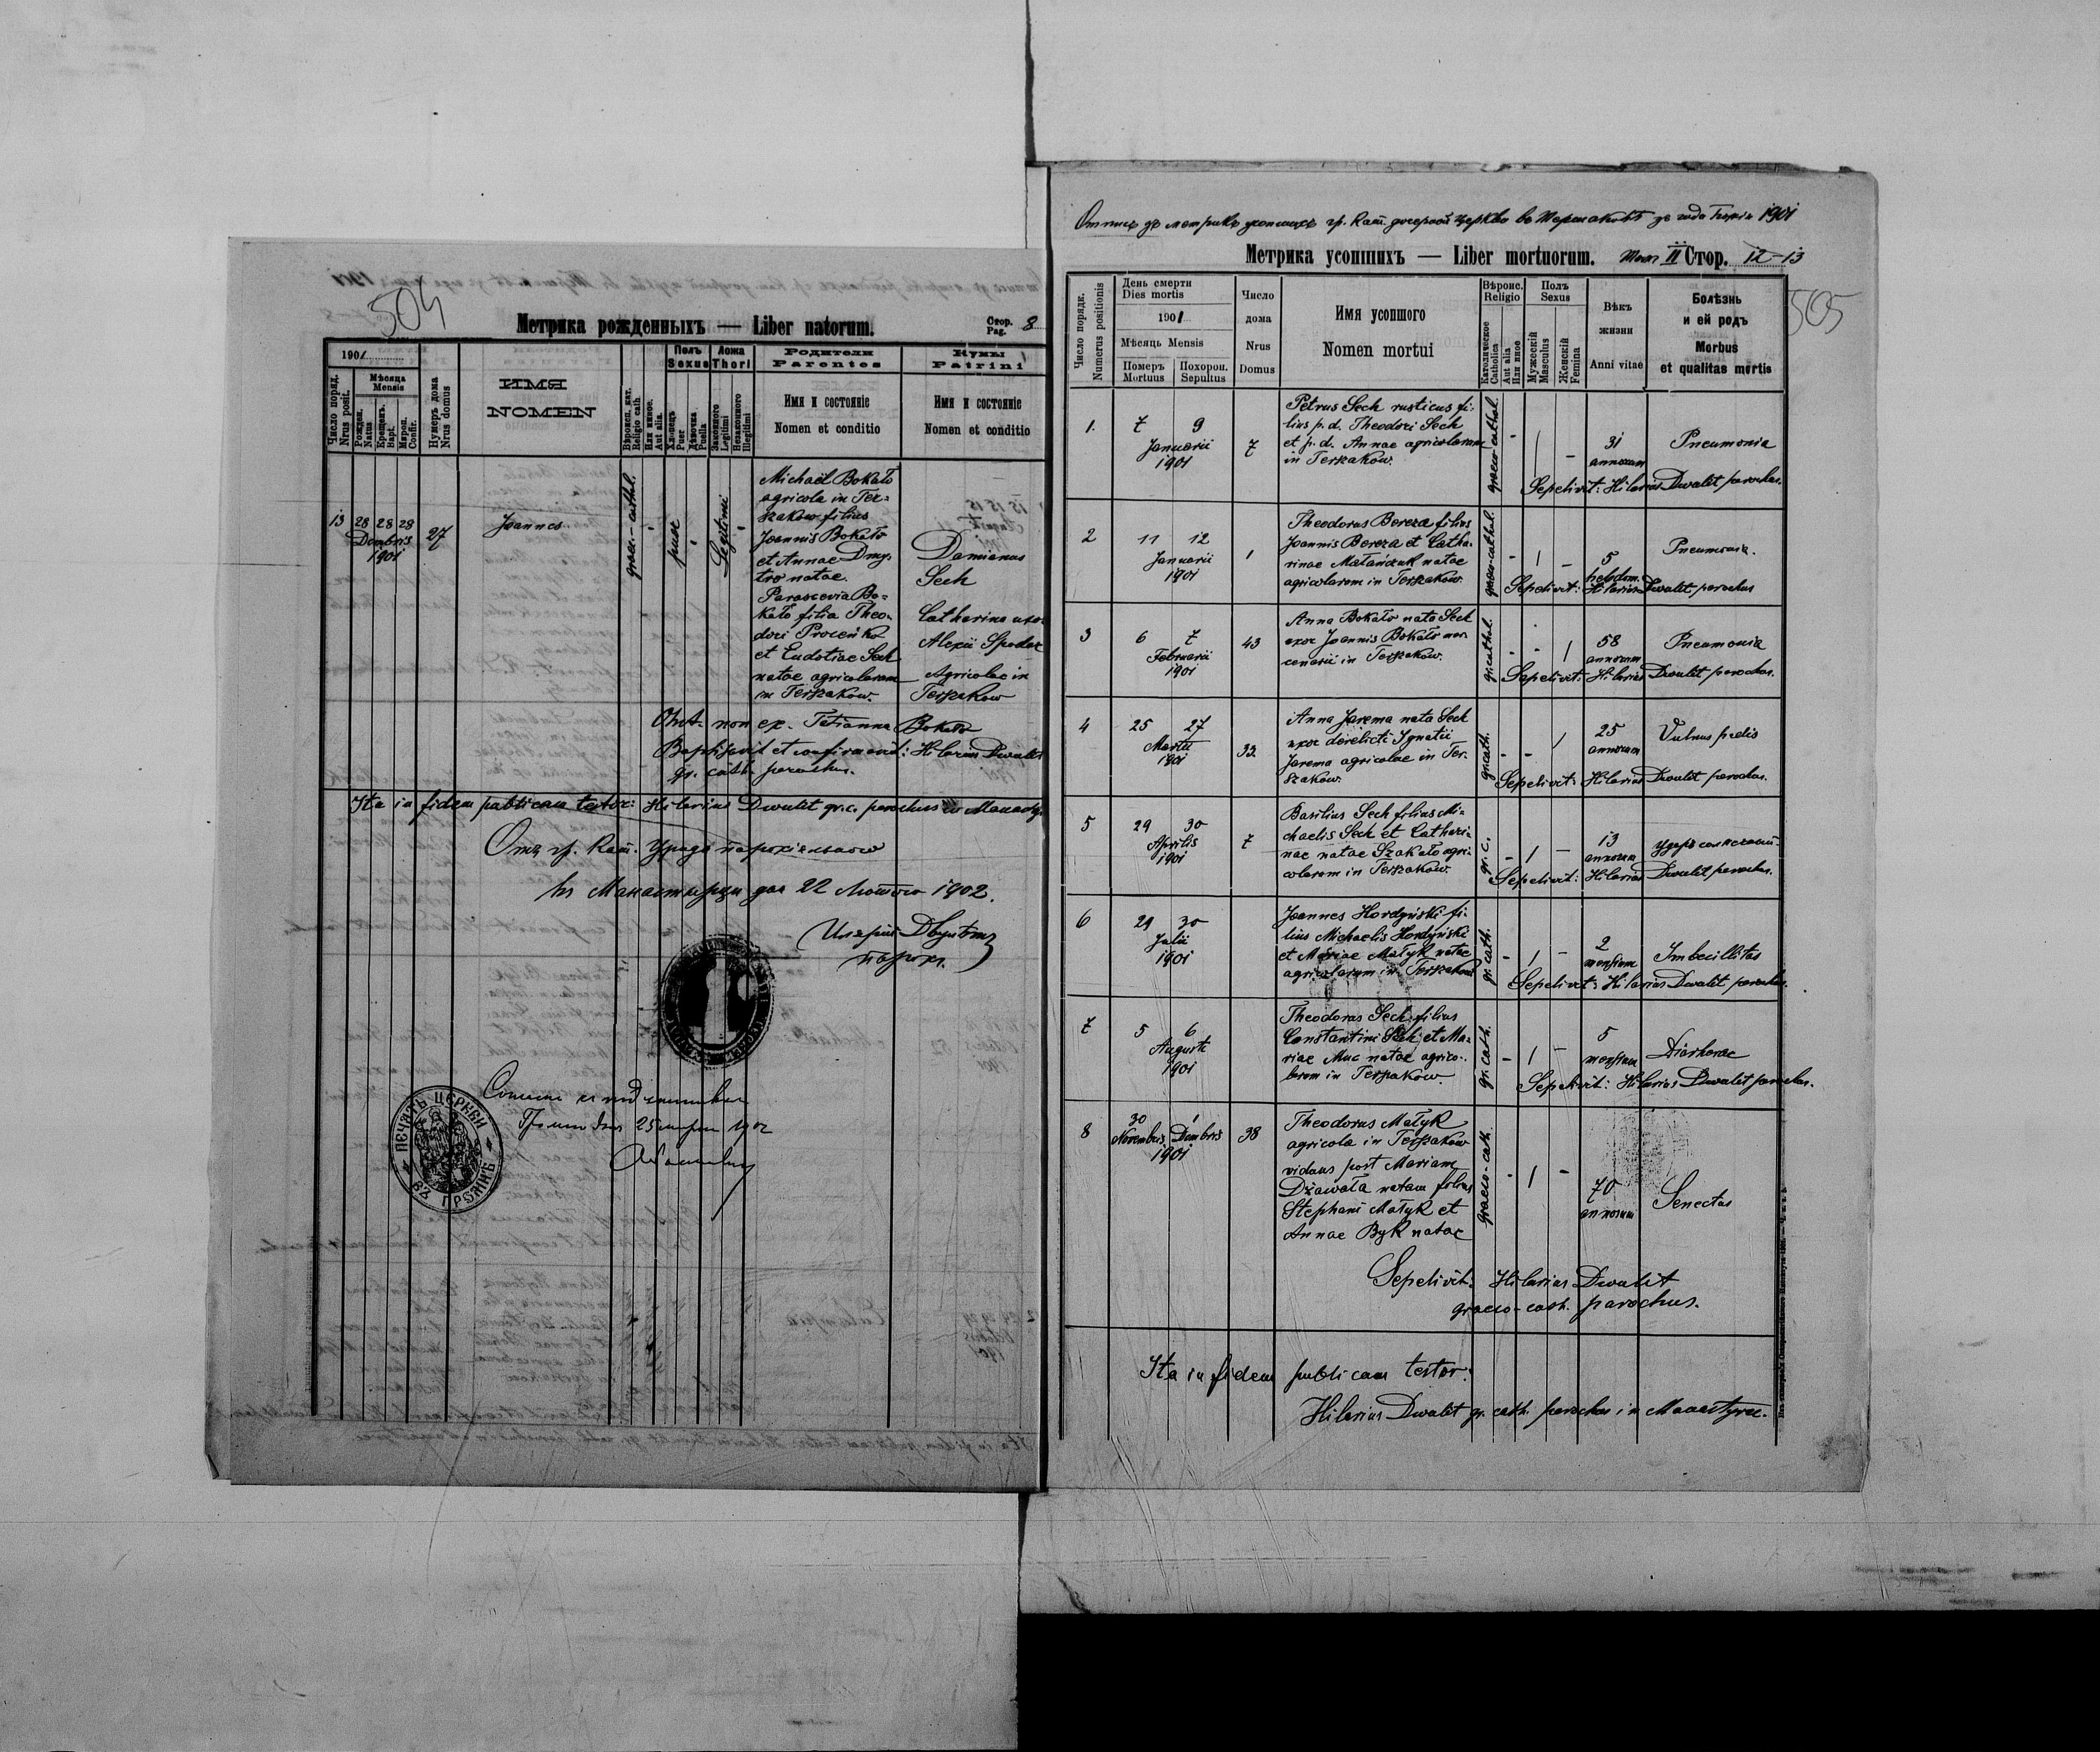 504
Метрика рожденныхъ — Liber natorum.
Стор.
Pag. 8
1901
Число поряд.
Nrus posit.
Мѣсяца
Mensis
Рожден.
Natus
Крещенъ.
Bapt.
Мѵроп.
Confir.
Нумеръ дома
Nrus domus
ИМЯ
NOMEN
Вѣроисп. кат.
Religio cath.
Или инное.
Aut alia.
Полъ
Sexus
Хлопець
Puer
Дѣвочка
Puella
Ложа
Thori
Законного
Legitimi
Незаконного
Illegitimi
Родители
Parentes
Имя и состояніе
Nomen et conditio
Кумы
Patrini
Имя и состояніе
Nomen et conditio
13 28 28 28
Dcembris
1901
27
Joannes
graec.-cathol.
puer
Legitimi
Michaël Bokało
agricola in Ter-
szaków filius
Joannis Bokało
et Annae Dmy-
tro natae.
Parascevia Bo-
kało filia Theo-
dori Proceńko
et Eudotiae Sech
natae agricolarum
in Terszaków.
Damianus
Sech
Catharina uxor
Alexii Spodar
Agricolae in
Terszaków
Obst. non ex. Tatianna Bokało
Baptisavit et confirmavit: Hilarius Dwulit
gr. cath. parochus.
Ita in fidem publicam testor: Hilarius Dwulit gr.c. parochus
Отъ гр. кат. Уряда парохіяльного
въ Манастырци дня 22 Лютого 1902.
Иляріи Двулѣтъ
парох.
ПЕЧАТЬ ЦЕРКВИ
ВЪ ГРѢМНѢ
1902
Отпись зъ метрикъ усопшихъ гр. кат. дочерной церкви въ Тершаковѣ за года Божія 1901
Метрика усопшихъ — Liber mortuorum. Томъ II Стор. 12-13
505
Число порядк.
Numerus positionis
День смерти
Dies mortis
1901
Мѣсяць Mensis
Померъ
Mortuus
Похорон.
Sepultus
Число
дома
Nrus
Domus
Имя усопшого
Nomen mortui
Вѣроис.
Religio
Католическое
Catholica
Aut alia
Или иное
Полъ
Sexus
Мужескій
Masculus
Женскій
Femina
Вѣкъ
жизни
Anni vitae
Болѣзнь
и ей родъ
Morbus
et qualitas mortis
1. 7 9
Januarii
1901
7
Petrus Sech rusticus fi-
lius p. d. Theodori Sech
et p. d. Annae agricolarum
in Terszaków.
graeco-cathol.
31
annorum
Pneumonia
Sepelivit: Hilarius Dwulit parochus.
2 11 12
Januarii
1901
1
Theodorus Bereza filius
Joannis Bereza et Catha-
rinae Matańczuk natae
agricolarum in Terszaków.
graeco-cathol.
5
hebdom.
Pneumonia.
Sepelivit: Hilarius Dwulit parochus
3 6 7
Februarii
1901
43
Anna Bokało nata Sech
uxor Joannis Bokało mer-
cenarii in Terszaków.
gr.cathol.
58
annorum
Pneumonia
Sepelivit: Hilarius Dwulit parochus.
4 25 27
Martii
1901
32
Anna Jarema nata Sech
uxor derelicti Ignatii
Jarema agricolae in Ter-
szaków.
gr.cath.
25
annorum
Vulnus pedis
Sepelivit: Hilarius Dwulit parochus.
5 29 30
Aprilis
1901
7
Basilius Sech filius Mi-
chaelis Sech et Cathari-
nae natae Szakało agri-
colarum in Terszaków.
gr. c.
13
annorum
Sepelivit: Hilarius Dwulit parochus.
6 29 30
Julii
1901
Joannes Hordyński fi-
lius Michaelis Hordyński
et Mariae Małyk natae
agricolarum in Terszaków
gr. cath.
2
mensium
Imbecillitas
Sepelivit: Hilarius Dwulit parochus.
7 5 6
Augusti
1901
Theodorus Sech filius
Constantini Sech et Ma-
riae Muc natae agrico-
larum in Terszaków.
gr. cath.
5
mensium
Diarhorae
Sepelivit: Hilarius Dwulit parochus.
8 30 1
Novembris Dcembris
1901
38
Theodorus Małyk
agricola in Terszaków
viduus post Mariam
Dżawała natam filius
Stephani Małyk et
Annae Byk natae
graeco-cath.
70
annorum
Senectus
Sepelivit: Hilarius Dwulit
graeco-cath. parochus.
Ita in fidem publicam testor:
Hilarius Dwulit gr. cath. parochus in Manastyrec.